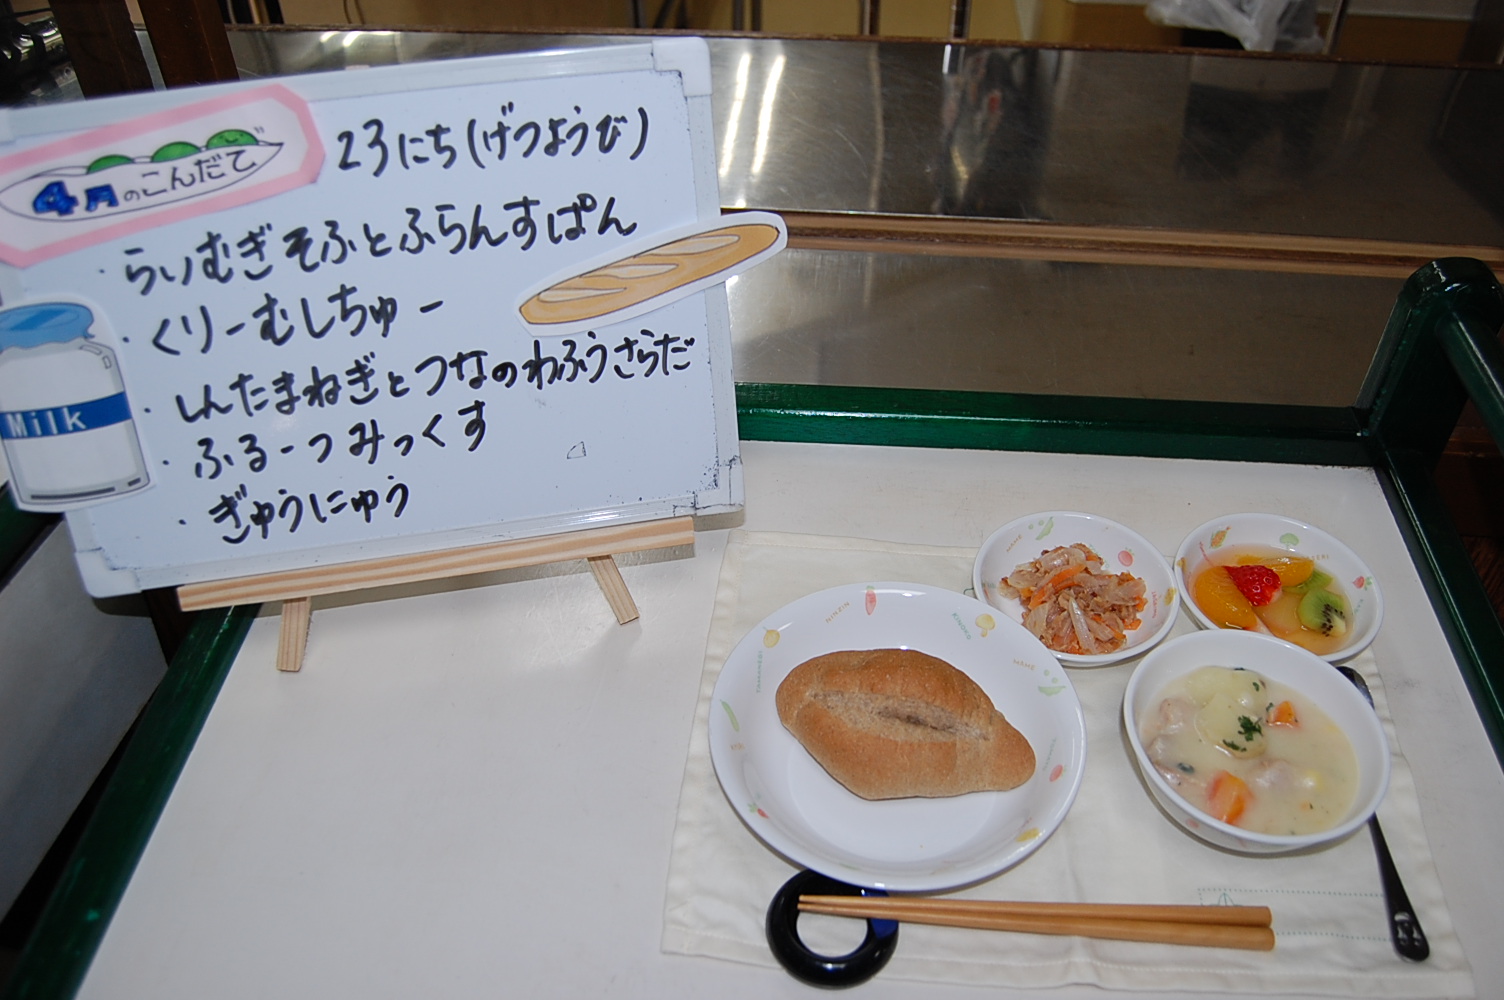 4月のこんだて
23にち(げつようび)
・らいむぎそふとふらんすぱん
・くりーむしちゅー
・しんたまねぎとつなのわふうさらだ
・ふるーつみっくす
・ぎゅうにゅう
Milk
NINJIN
KINOKO
MAME